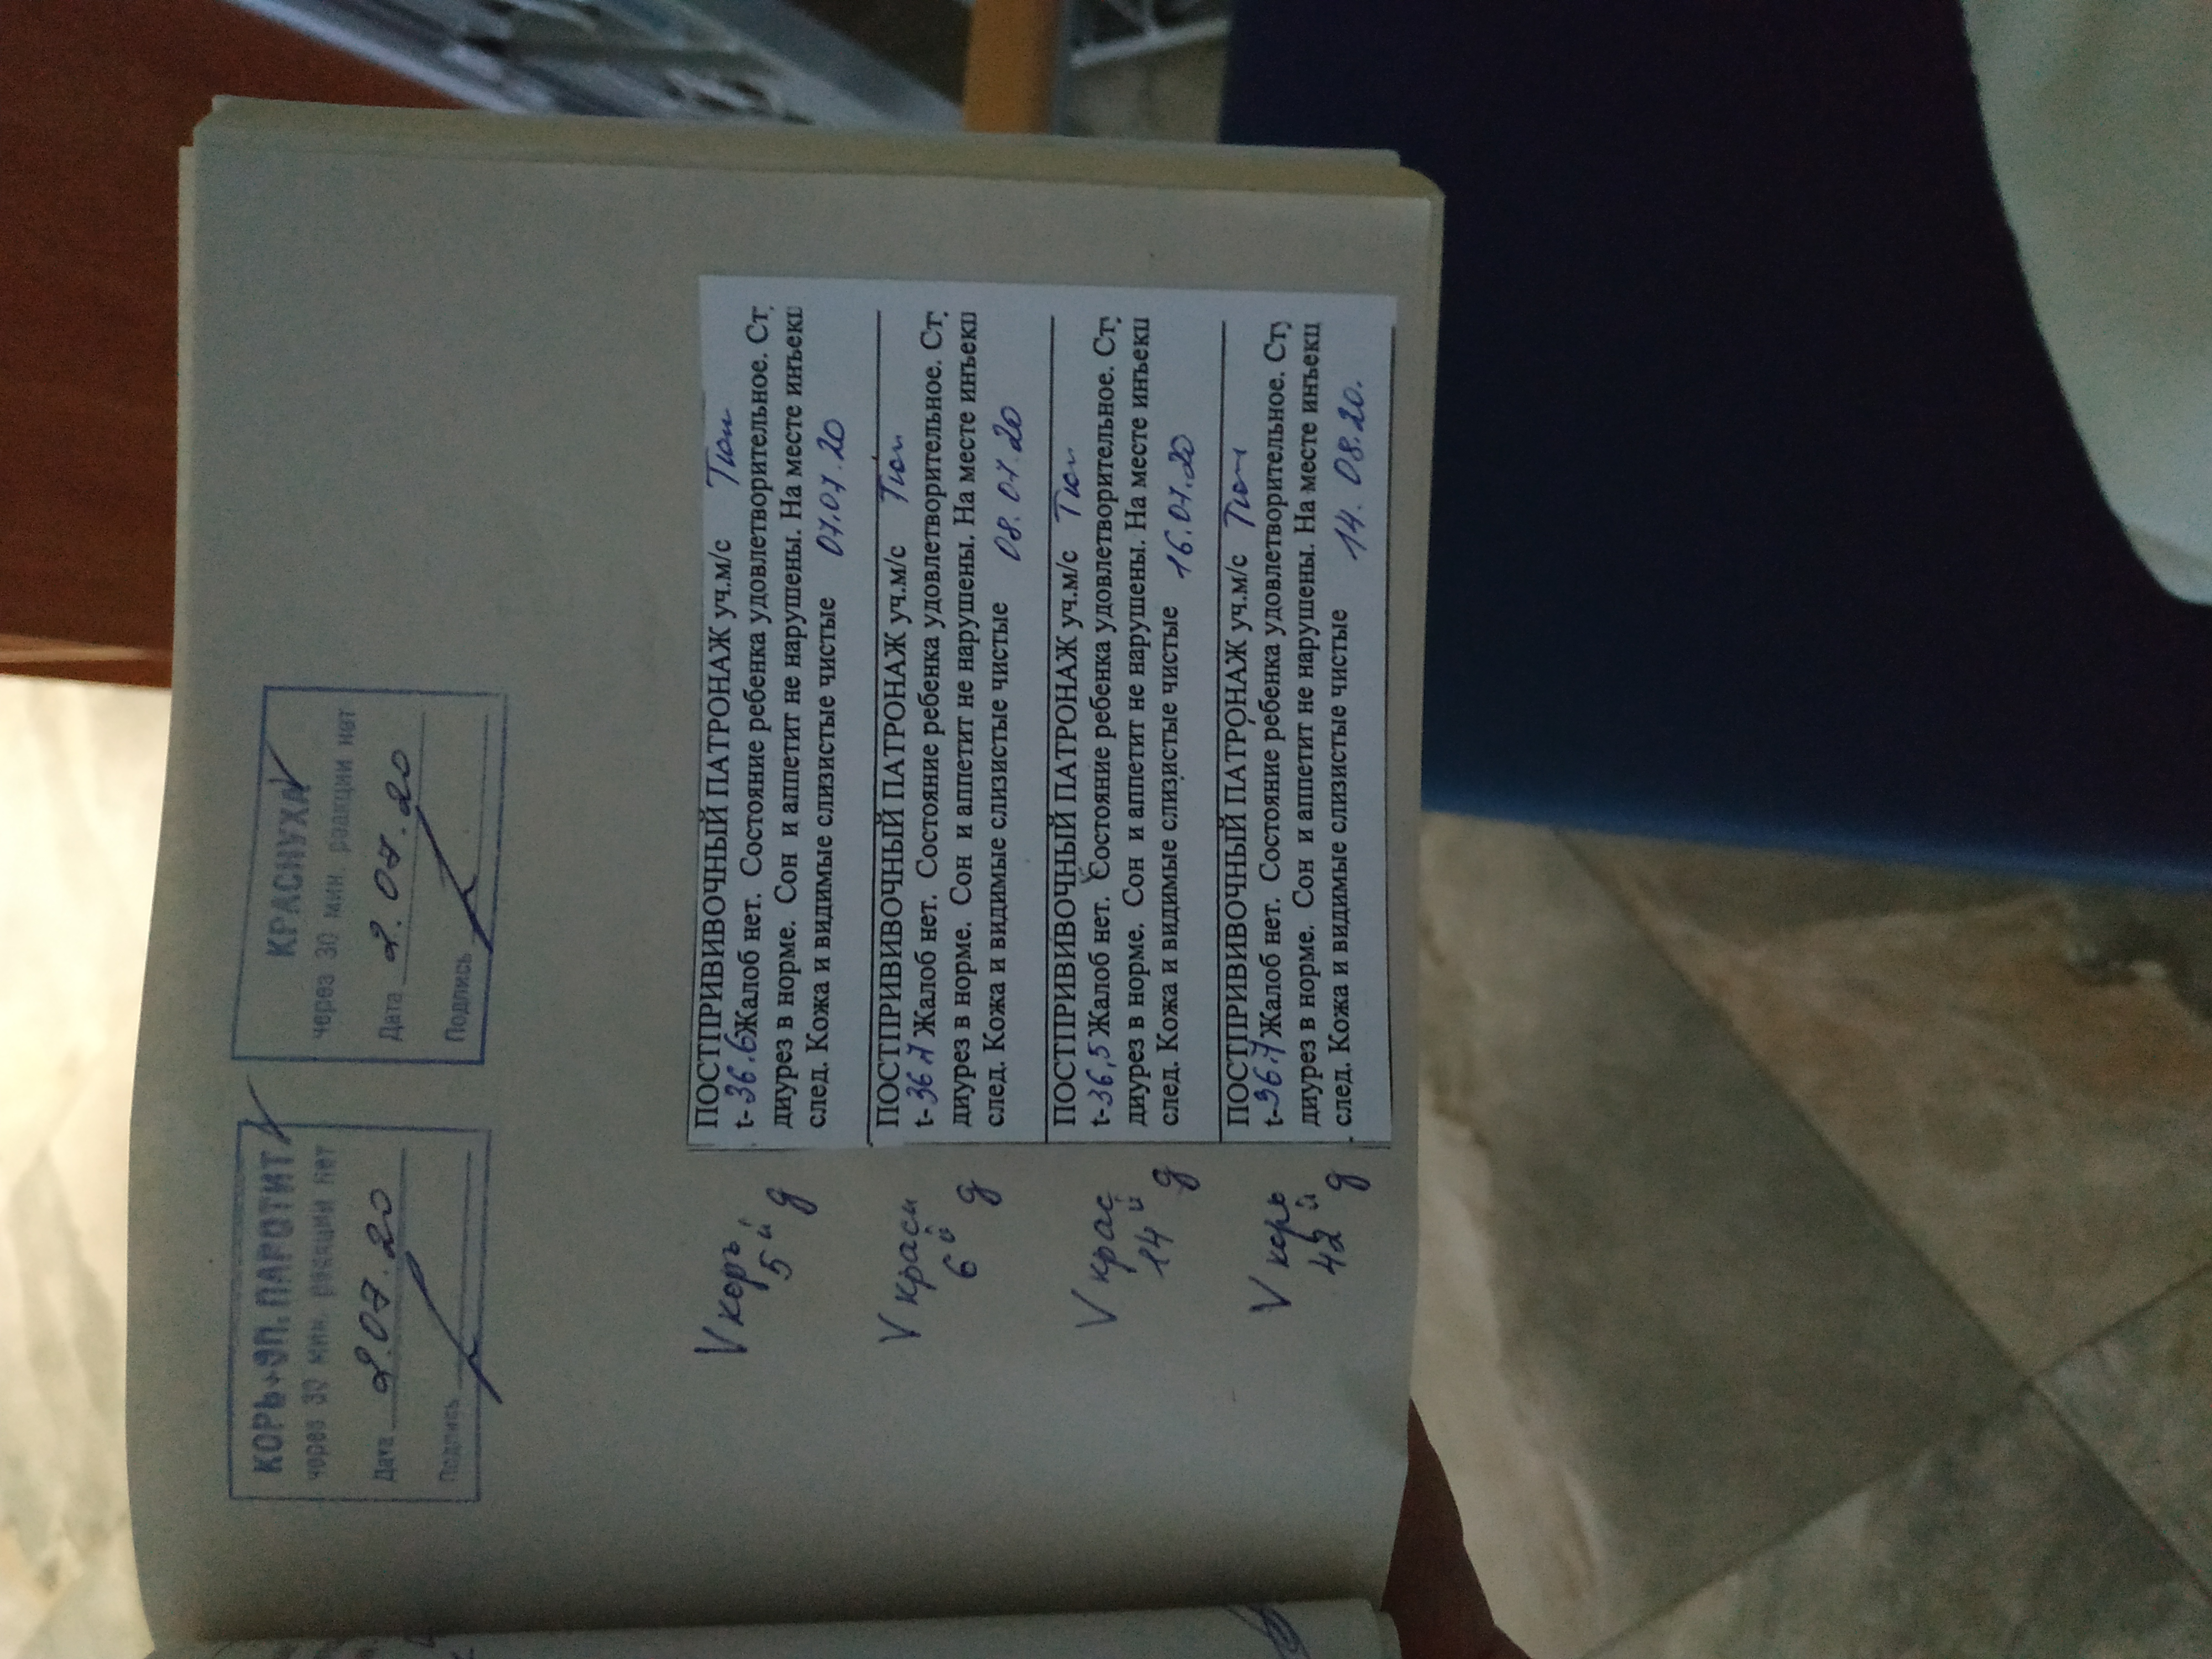 КОРЬ+ЭП.ПАРОТИТ
через 30 мин. реакции нет
Дата 2.07.20
Подпись
КРАСНУХА
через 30 мин. реакции нет
Дата 2.07.20
Подпись
V корь
5й д
ПОСТПРИВИВОЧНЫЙ ПАТРОНАЖ уч.м/с
t-36.6 Жалоб нет. Состояние ребенка удовлетворительное. Ст
диурез в норме. Сон и аппетит не нарушены. На месте инъекц
след. Кожа и видимые слизистые чистые 07.07.20
V красн
6й д
ПОСТПРИВИВОЧНЫЙ ПАТРОНАЖ уч.м/с
t-36.7 Жалоб нет. Состояние ребенка удовлетворительное. Ст
диурез в норме. Сон и аппетит не нарушены. На месте инъекц
след. Кожа и видимые слизистые чистые 08.07.20
V крас
14й д
ПОСТПРИВИВОЧНЫЙ ПАТРОНАЖ уч.м/с
t-36,5 Жалоб нет. Состояние ребенка удовлетворительное. Сту
диурез в норме. Сон и аппетит не нарушены. На месте инъекц
след. Кожа и видимые слизистые чистые 16.07.20
V корь
42й д
ПОСТПРИВИВОЧНЫЙ ПАТРОНАЖ уч.м/с
t-36.7 Жалоб нет. Состояние ребенка удовлетворительное. Сту
диурез в норме. Сон и аппетит не нарушены. На месте инъекц
след. Кожа и видимые слизистые чистые 14.08.20.